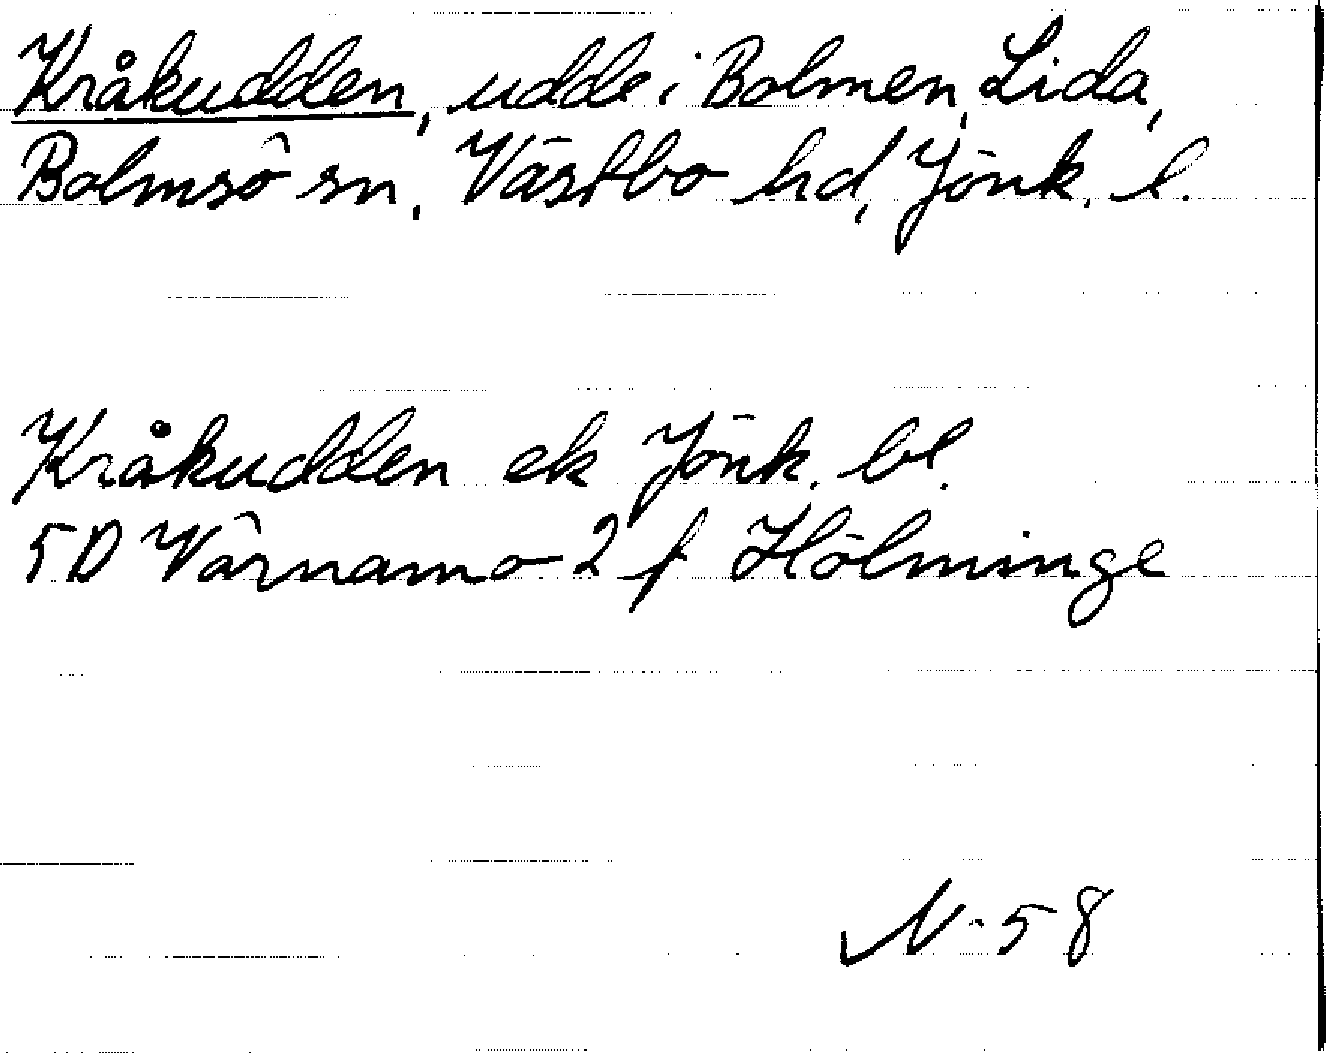 Kråkudden, udde i Bolmen, Lida,
Bolmsö sn, Västbo hd, Jönk. l.
Kråkudden ek Jönk. bl.
5D Värnamo 2 f Hölminge
N-58